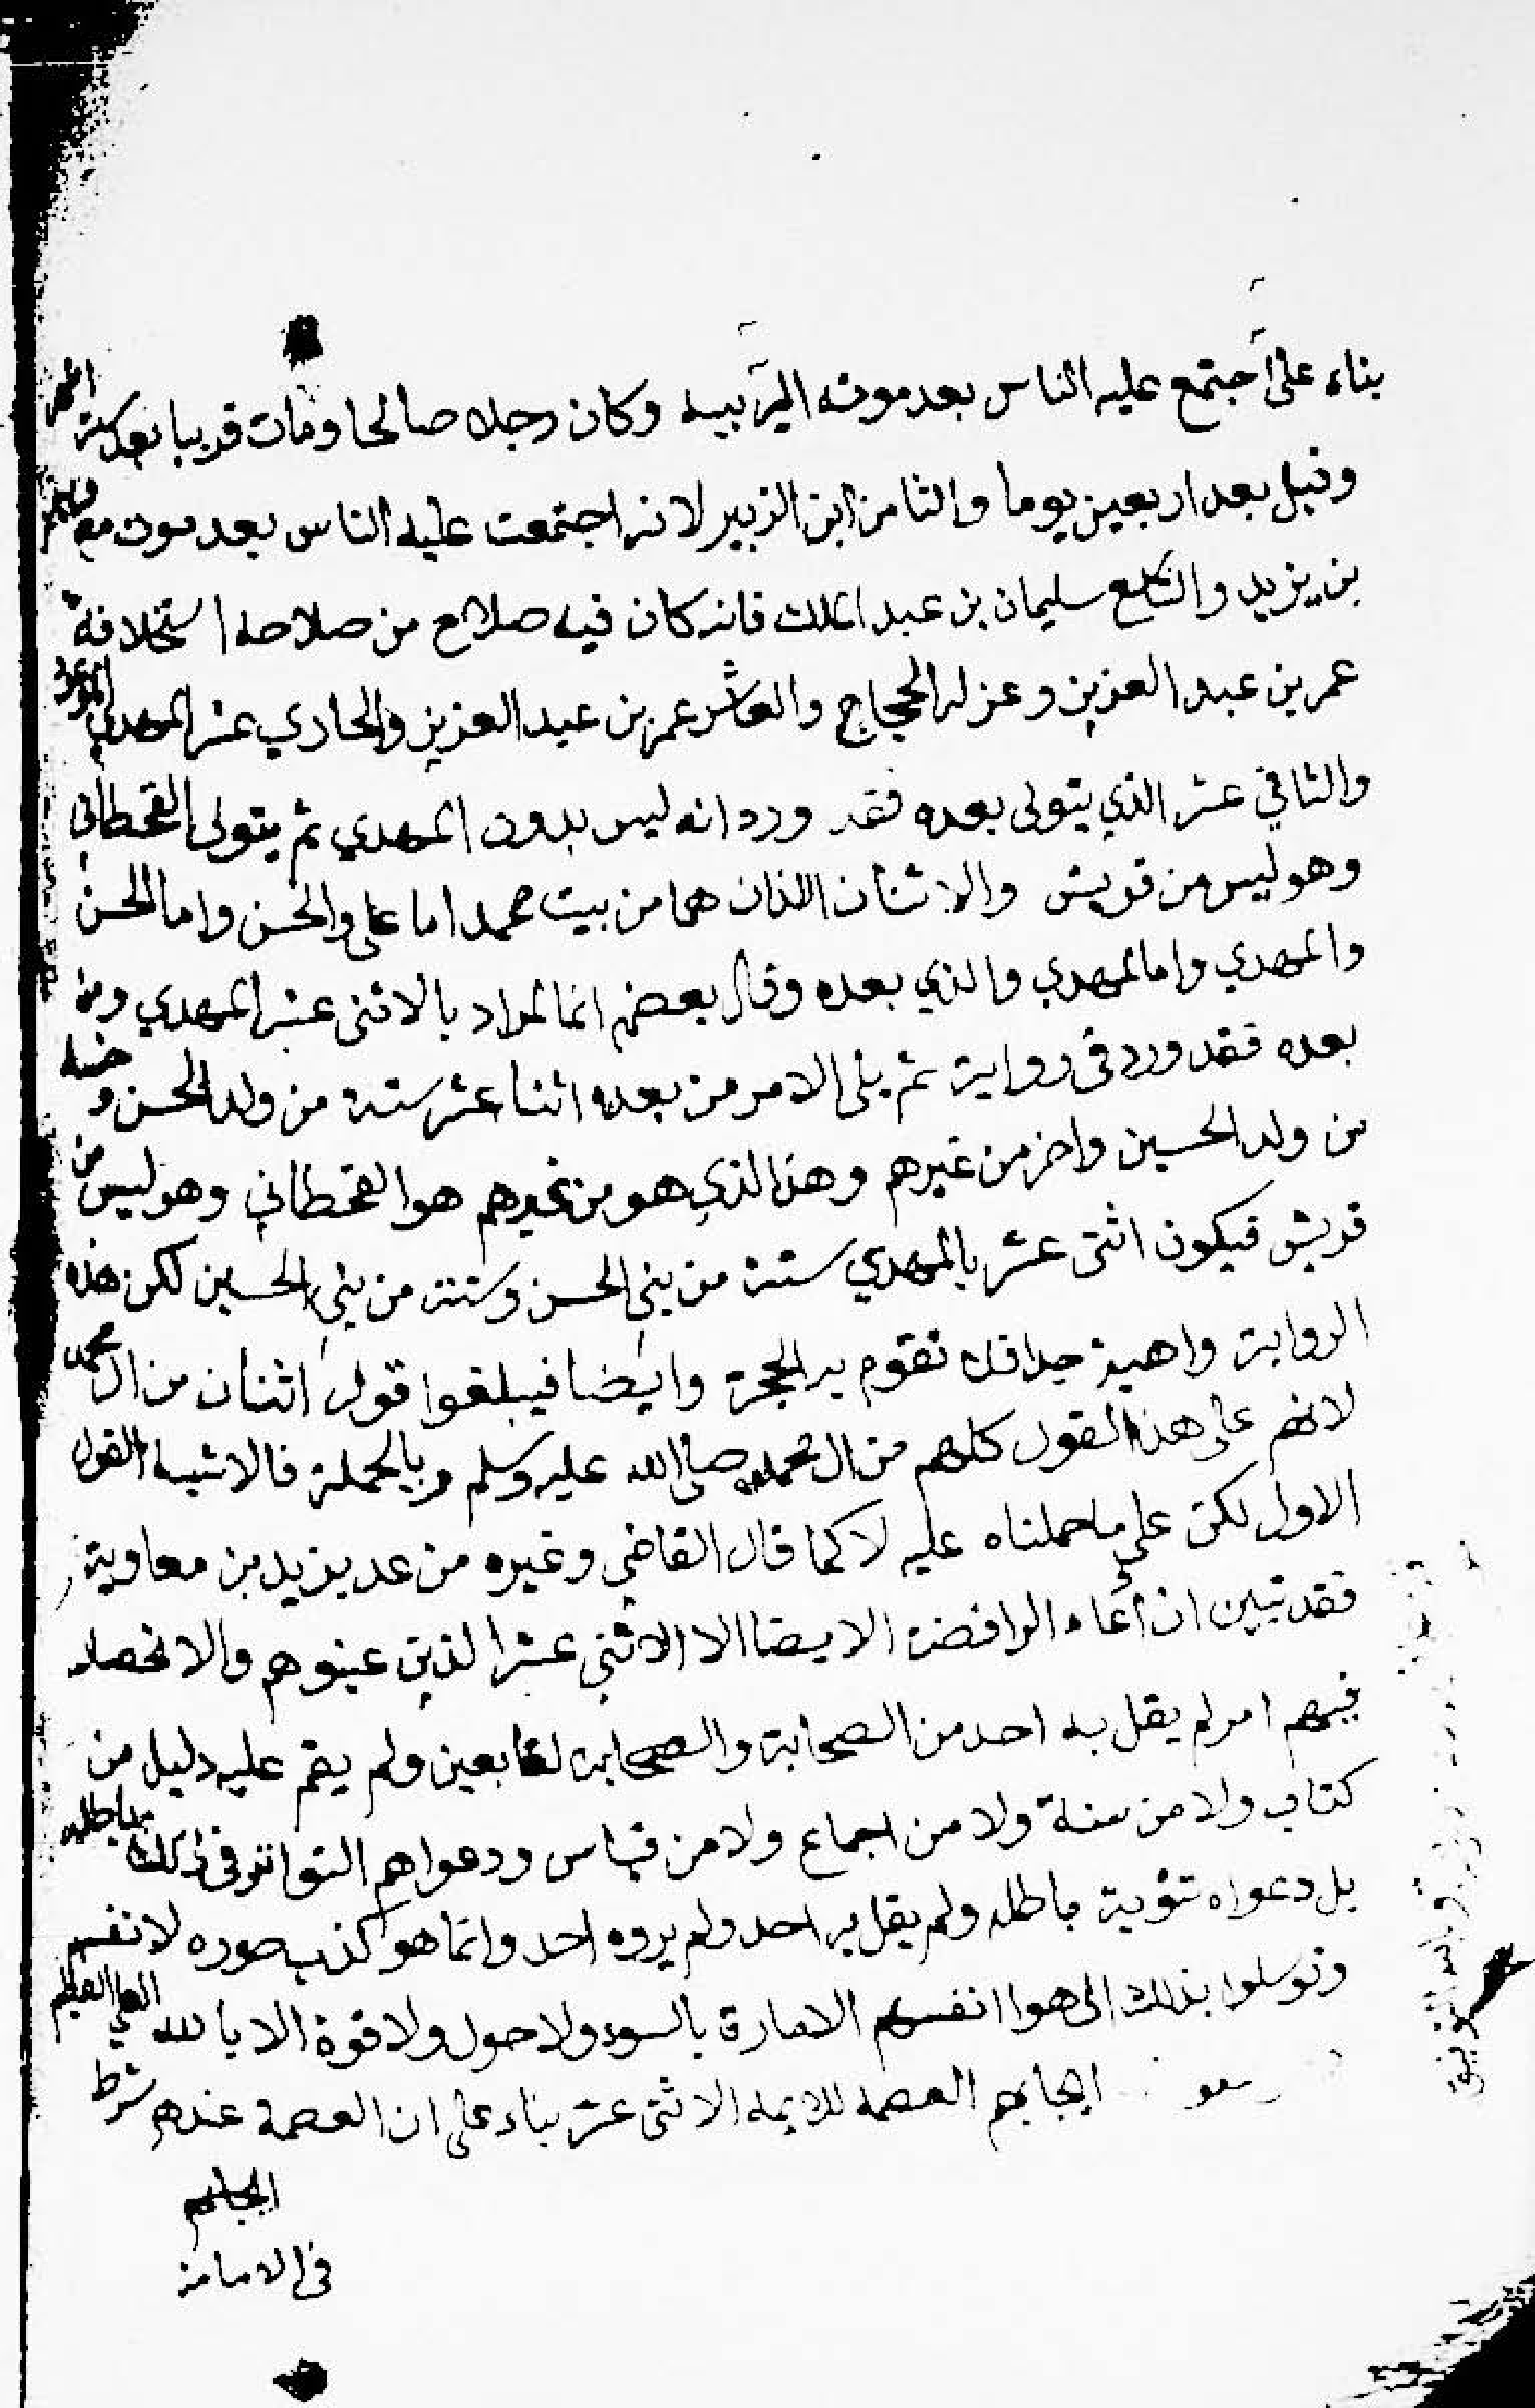 بناء على اجتمع عليه الناس بعد موت ابيه وكان رجلا صالحا ومات قريبا بعد
وقيل بعد اربعين يوما والثامن ابن الزبير لانه اجتمعت عليه الناس بعد موت
بن يزيد والتاسع سليمان بن عبد الملك فانه كان فيه صلاح من صلاحه استخلافه
عمر بن عبد العزيز وعزله الحجاج والعاشر عمر بن عبد العزيز والحادي عشر المهدي
والثاني عشر الذي يتولى بعده فقد ورد انه ليس بدون المهدي ثم يتولى القحطاني
وهو ليس من قريش والاثنان اللذان هما من بيت محمد اما على والحسن واما الحسن
والمهدي واما المهدي والذي بعده وقال بعضهم انما المراد بالاثنى عشر المهدي ومن
بعده فقد ورد فى رواية ثم يلى الامر من بعده اثنا عشر ستة من ولد الحسن وخمسة
من ولد الحسين واخر من غيرهم وهذا الذي هو من غيرهم هو القحطاني وهو ليس من
قريش فيكون اثنى عشر بالمهدي ستة من بني الحسن وستة من بني الحسين لكن هذه
الرواية واهية جدا فلا تقوم به الحجة وايضا فيبلغوا قوله اثنان من ال محمد
لانهم على هذا القول كلهم من ال محمد صلى الله عليه وسلم وبالجملة فالاشبه القول
الاول لكن على ما حملناه عليه لا كما قال القاضي وغيره من عد يزيد بن معاوية
فقد تبين ان ادعاء الرافضة الايصا الا الاثني عشر الذين عينوهم والانحصار
فيهم امر لم يقل به احد من الصحابة والتابعين ولم يقم عليه دليل من
كتاب ولا من سنة ولا من اجماع ولا من قياس ودعواهم التواتر في ذلك باطلة
بل دعواه باطله ولم يقل به احد ولم يروه احد وانما هو كذب صوره لانفسهم
وتوسلوا بذلك الى هوا انفسهم الامارة بالسوء ولا حول ولا قوة الا بالله العلي العظيم
ايجابهم العصمه للايمه الاثنى عشر بناء على ان العصمة عندهم شرط
في الامامة